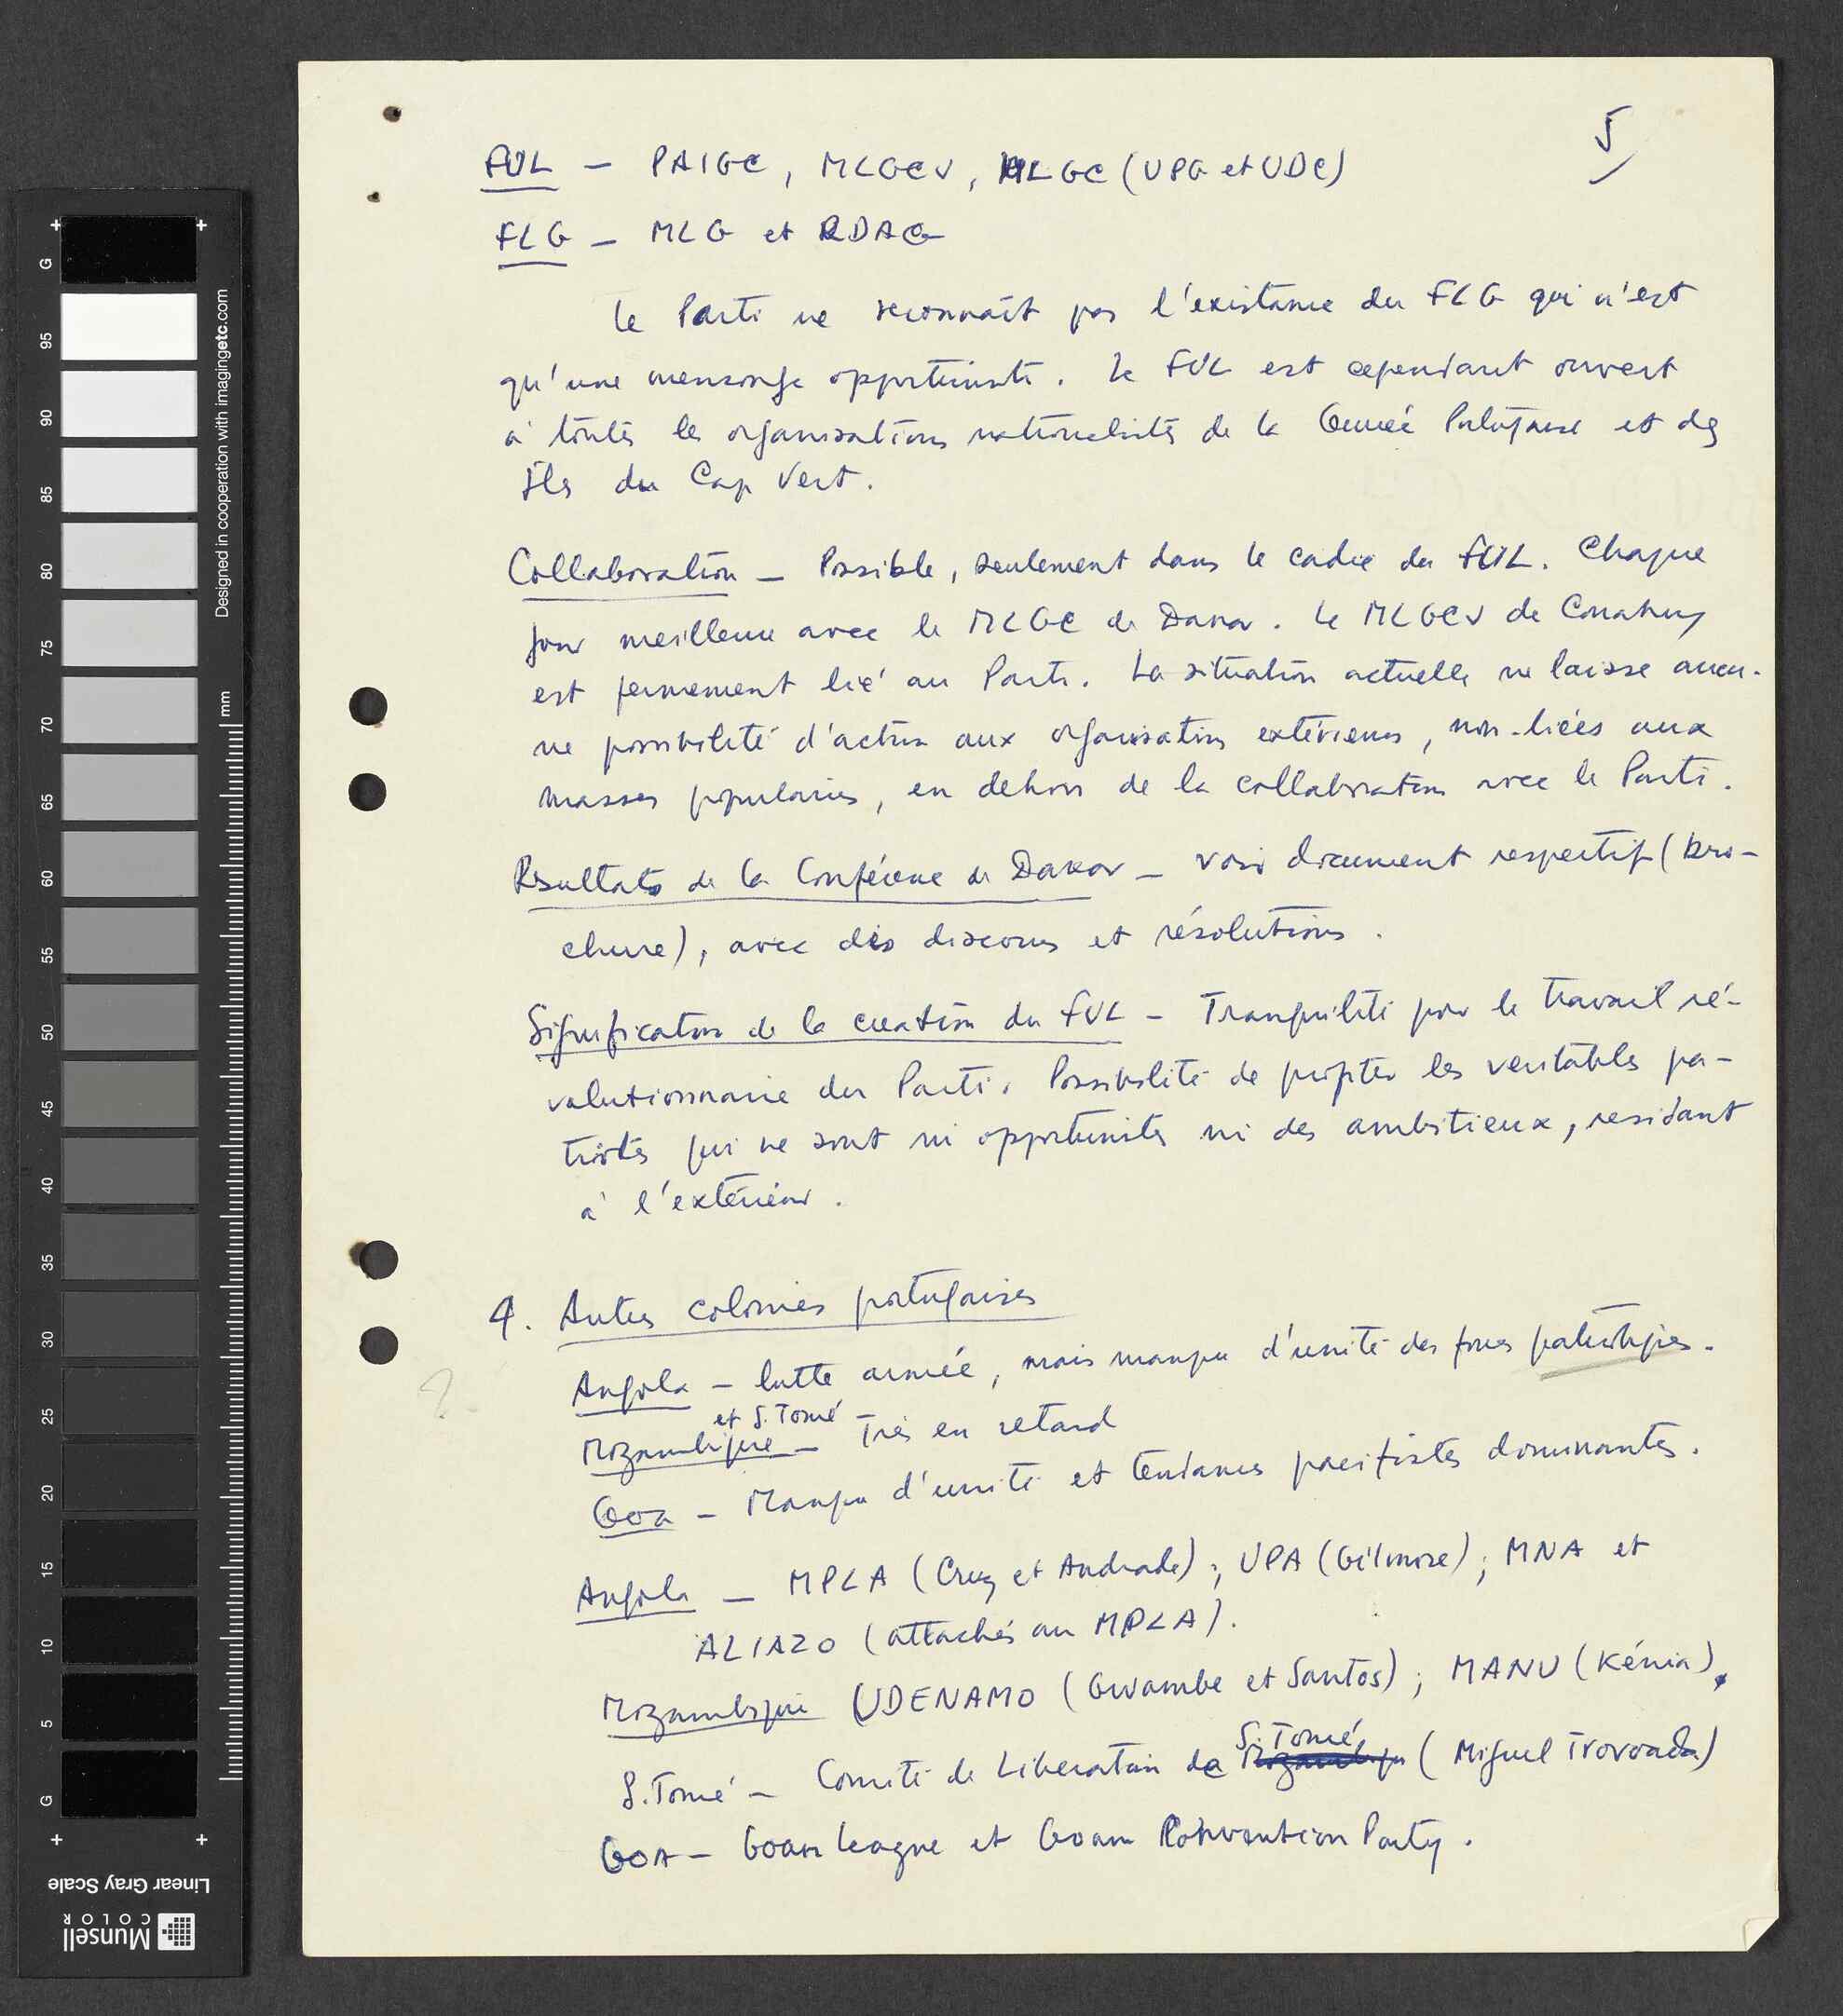 5
FUL — PAIGC, MLGCV, MLGC (UPG et UDC)
FLG — MLG et RDAG
Le Parti ne reconnaît pas l'existance du FLG qui n'est
qu'une mensonge opportuniste. Le FUL est cependant ouvert
à toutes les organisations nationalistes de la Guinée Portugaise et des
Îles du Cap Vert.
Collaboration — Possible, seulement dans le cadre du FUL. Chaque
jour meilleure avec le MLGC de Dakar. Le MLGCV de Conakry
est fermement lié au Parti. La situation actuelle ne laisse aucu-
ne possibilité d'action aux organisations extérieures, non-liées aux
masses populaires, en dehors de la collaboration avec le Parti.
Résultats de la Conférence de Dakar — voir document respectif (bro-
chure), avec des discours et résolutions.
Signification de la création du FUL — Tranquilité pour le travail ré-
volutionnaire du Parti. Possibilité de profiter les veritables pa-
triotes qui ne sont ni opportunistes ni des ambitieux, residant
à l'extérieur.
4. Autres colonies portugaises
Angola — lutte armée, mais manque d'unité des forces patriotiques.
et S. Tomé
Mozambique — Très en retard
Goa — Manque d'unité et tendances pacifistes dominantes.
Angola — MPLA (Cruz et Andrade); UPA (Gilmore); MNA et
ALIAZO (attachés au MPLA).
Mozambique UDENAMO (Gwambe et Santos); MANU (Kénia),
S. Tomé
S. Tomé — Comité de Liberation de Mozambique (Miguel Trovoada)
GOA — Goan League et Goan Convention Party.
Designed in cooperation with imagingetc.com
mm
G
95
90
85
80
75
70
65
60
55
50
45
40
35
30
25
20
15
10
5
G
Linear Gray Scale
Munsell
COLOR